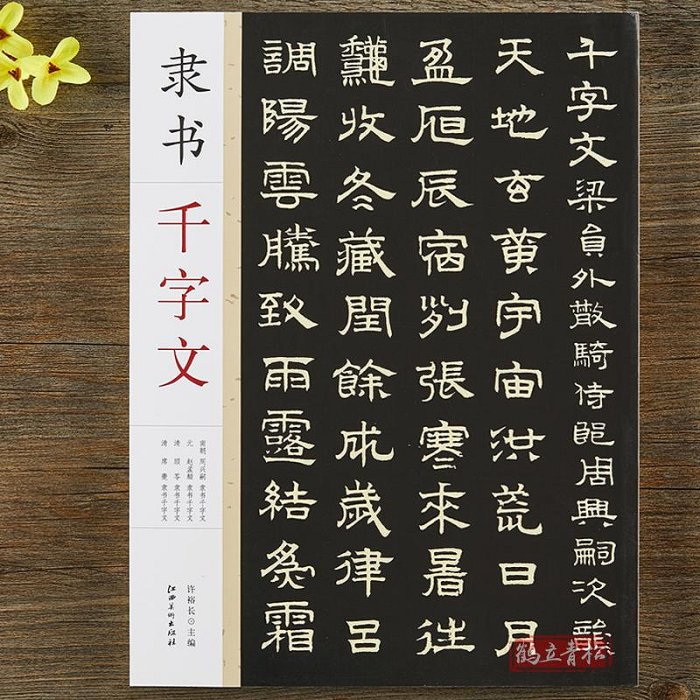 千字文梁員外散騎侍郎周興嗣次韻
天地玄黄宇宙洪荒日月
盈昃辰宿列張寒來暑往
秋收冬藏閏餘成歲律呂
調陽雲騰致雨露結為霜
隶书
千字文
南朝 周兴嗣 隶书千字文
元 赵孟頫 隶书千字文
清 顾苓 隶书千字文
清 席夔 隶书千字文
许裕长⊙主编
江西美術出版社
鹤立青松